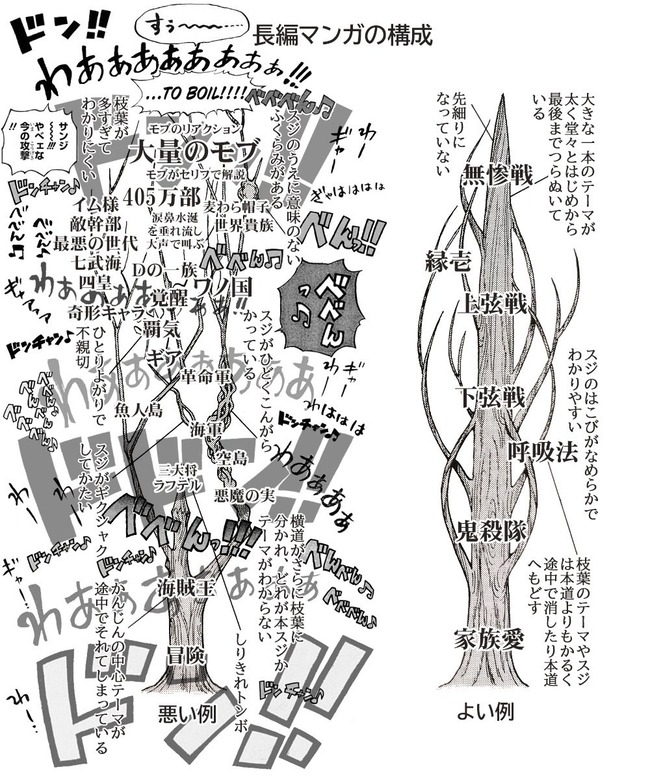 長編マンガの構成
ドン!!
すぅ〜〜〜〜
わあああああああぁ!!!
...TO BOIL!!!!
べべべん♪
サンジ
〜〜〜!!
やべェな
今の攻撃
!!
枝葉が
多すぎて
わかりにくい
モブのリアクション
大量のモブ
モブがセリフで解説
405万部
涙鼻水涎
を垂れ流し
大声で叫ぶ
麦わら帽子
世界貴族
スジのうえに意味のない
ふくらみがある
わー
ぎゃー
ぎゃはははは
べんっ!!
べべん♪
ドンチャン♪
イム様
敵幹部
最悪の世代
七武海
四皇
奇形キャラ
Dの一族
覚醒
〜ワノ国
覇気
ギア
革命軍
魚人島
海軍
空島
三大将
ラフテル
悪魔の実
海賊王
冒険
悪い例
ギャアアア
ドンチャン♪
ひとりよがりで
不親切
スジがひどくこんがら
かっている
わははは
ドンチャン♪
わああぁぁ
スジがギクシャク
してかたい
べべんっ!!!
ドドン!!
横道がさらに枝葉に
分かれ、どれが本スジか
テーマがわからない
べんべん♪
べべべん♪
かんじんの中心テーマが
途中でそれてしまっている
しりきれトンボ
ドンチャン♪
ドン!!
大きな一本のテーマが
太く堂々とはじめから
最後までつらぬいて
いる
先細りに
なっていない
無惨戦
縁壱
上弦戦
スジのはこびがなめらかで
わかりやすい
下弦戦
呼吸法
鬼殺隊
枝葉のテーマやスジ
は本道よりもかるく
途中で消したり本道
へもどす
家族愛
よい例